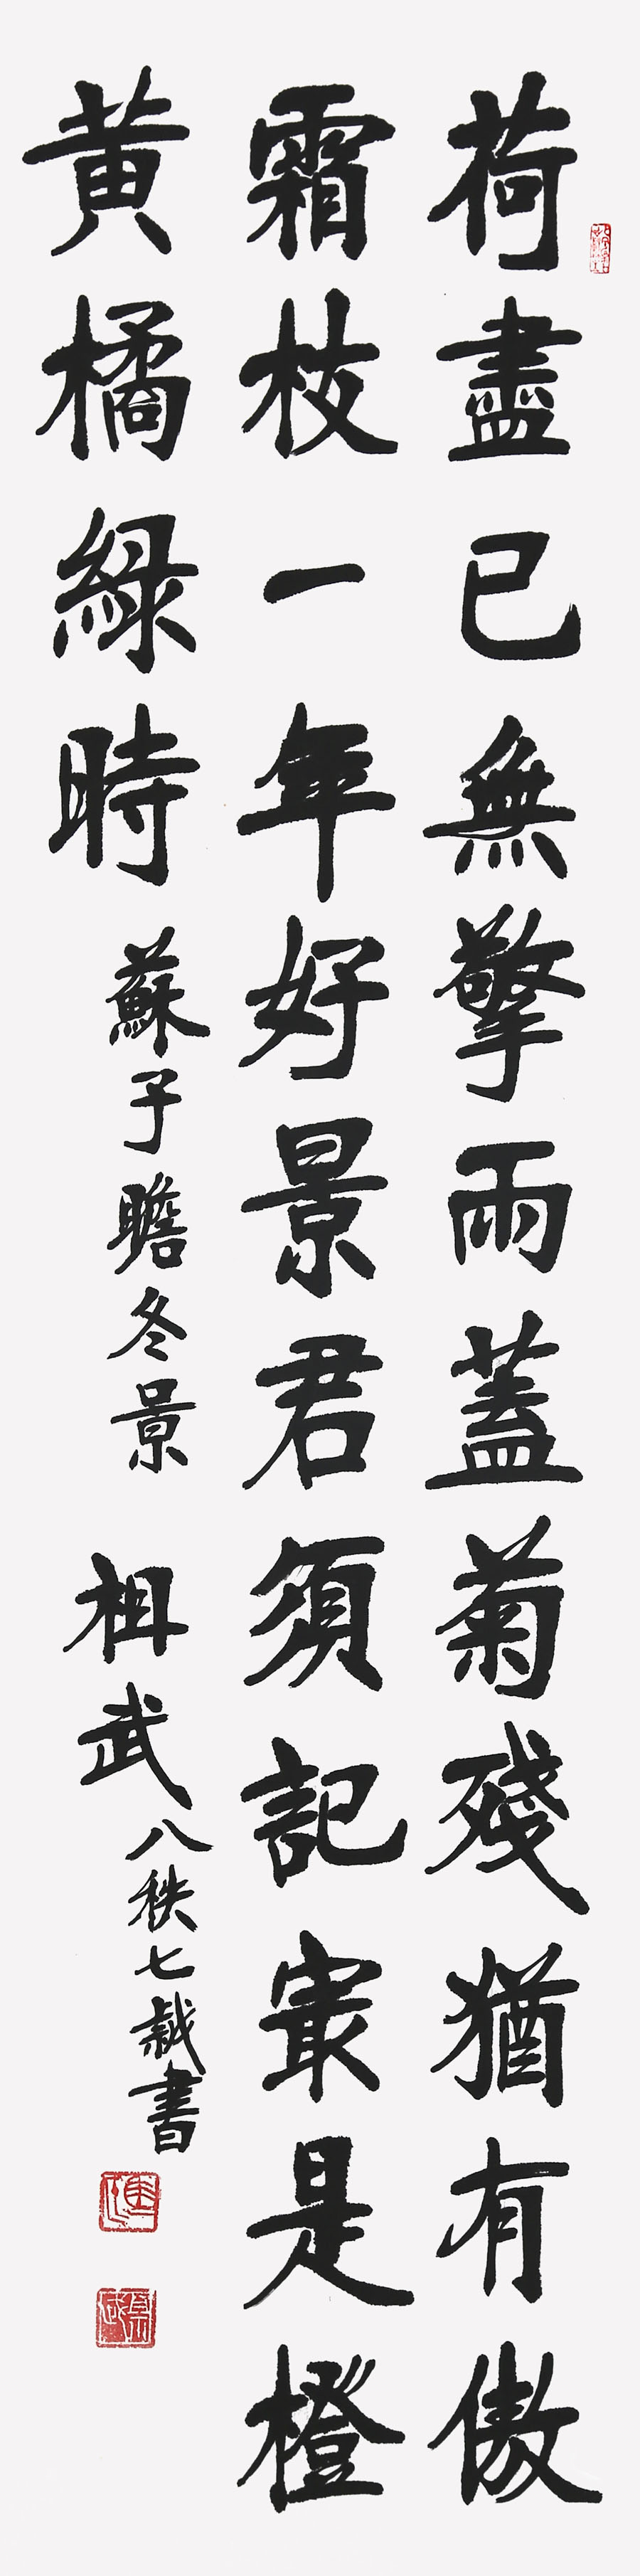 荷盡已無擎雨蓋菊殘猶有傲
霜枝一年好景君須記㝡是橙
黄橘緑時
蘇子瞻冬景
祖武
八秩七
書